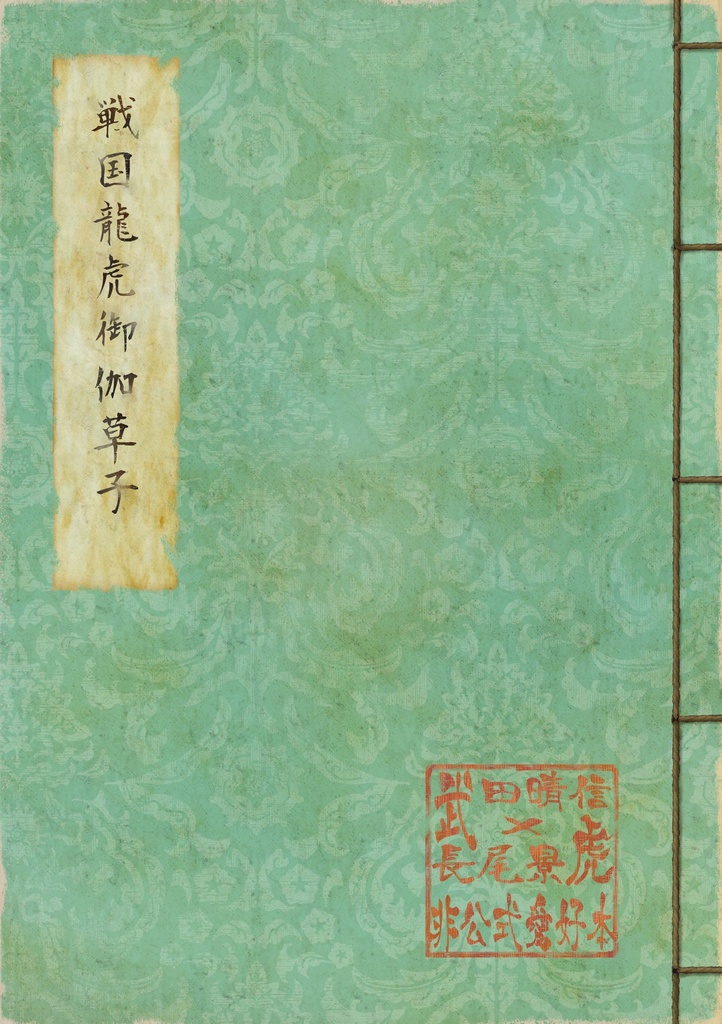 戦国龍虎御伽草子
武田晴信
×
長尾景虎
非公式愛好本